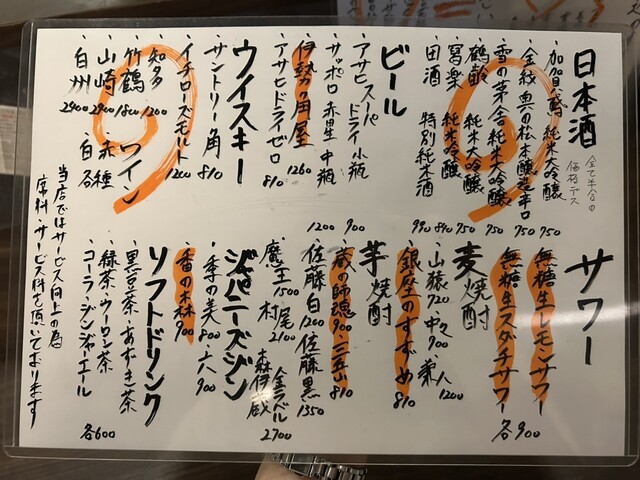 日本酒
全て半合の
価格デス
・加賀鳶 純米大吟醸 750
・金紋 奥の松 本醸造辛口 750
・雪の茅舎 純米吟醸 750
・鶴齢 純米大吟醸 950
・寫楽 純米吟醸 840
・田酒 特別純米酒 990
ビール
・アサヒスーパードライ小瓶
・サッポロ赤星 中瓶 900
・伊勢角屋 1260
・アサヒドライゼロ 810
ウイスキー
・サントリー角 810
・イチローズモルト 1200
・知多 1200
・竹鶴 1800
・山崎 2900
・白州 2400
ワイン
・赤 種
・白 各
サワー
・無糖生レモンサワー
・無糖生スダチサワー
各900
麦焼酎
・山猿720 ・中々900 ・兼八1200
・銀座のすずめ 810
芋焼酎
・蔵の師魂900 ・三岳810
・佐藤白1200 佐藤黒1350
・魔王1500 村尾2100
森伊蔵 金ラベル
2700
ジャパニーズジン
・季の美 800 ・六 900
・香の森 900
ソフトドリンク
・黒豆茶・あずき茶
・緑茶・ウーロン茶
・コーラ・ジンジャーエール
各600
当店ではサービス向上の為
席料・サービス料を頂いております